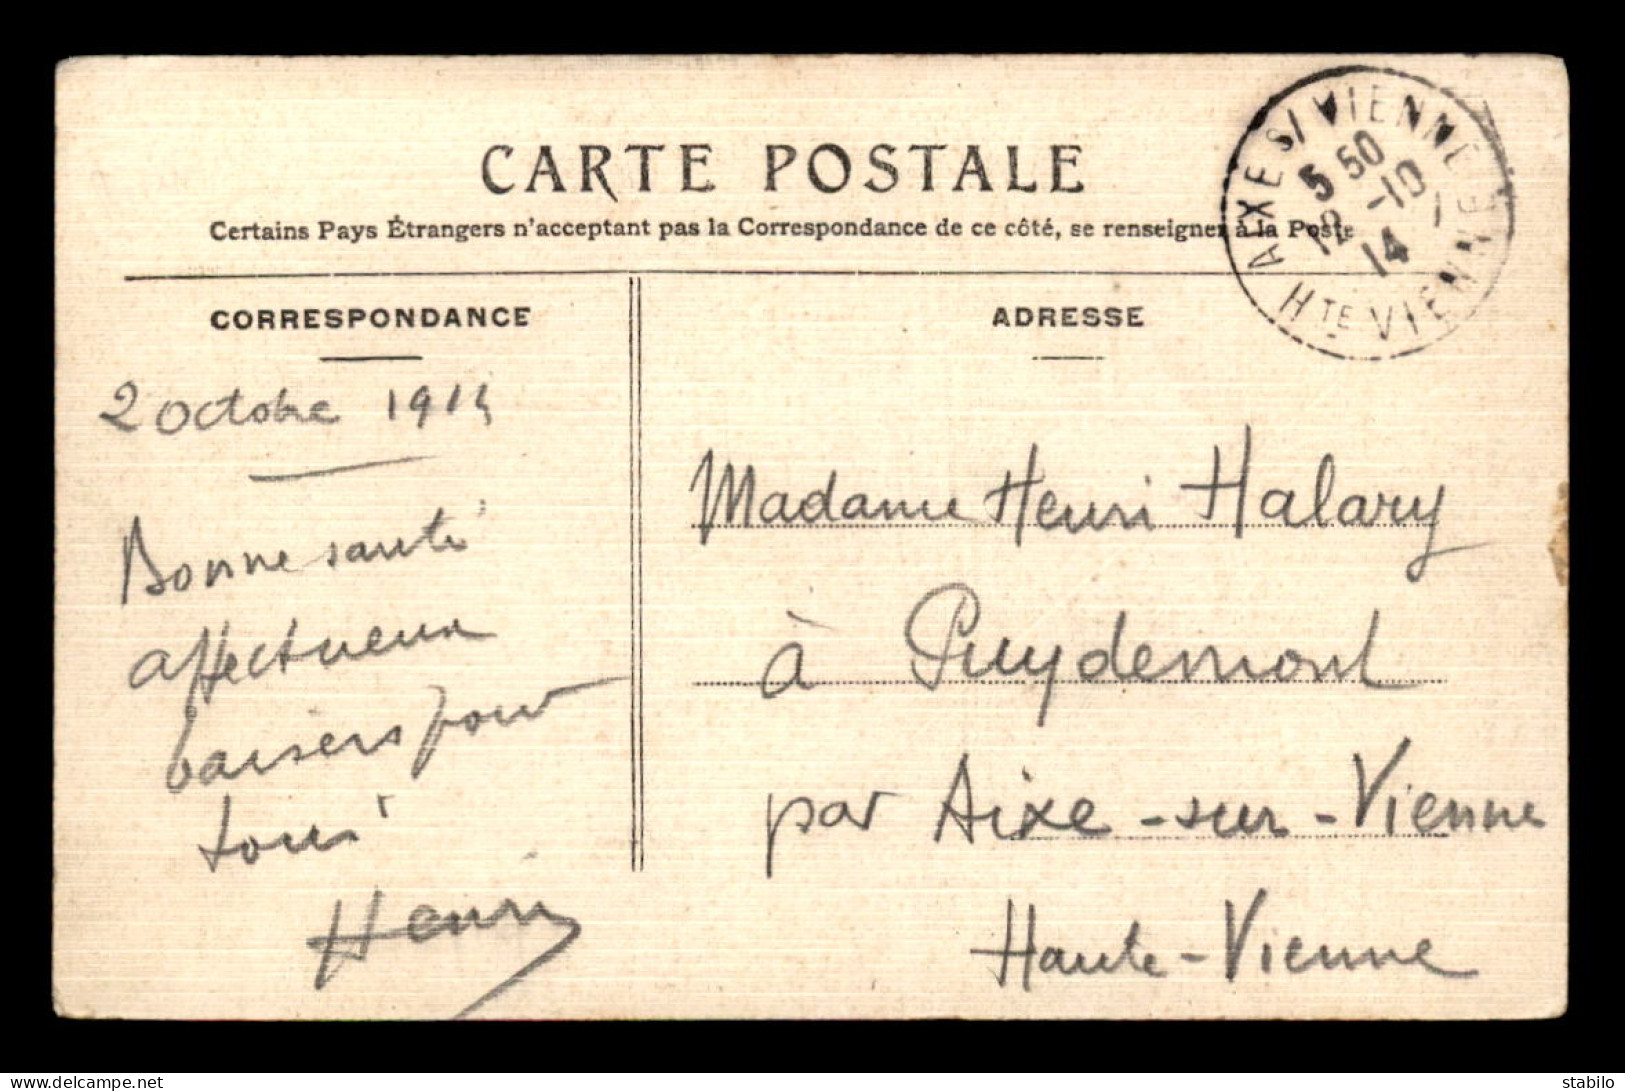 CARTE POSTALE
Certains Pays Étrangers n'acceptant pas la Correspondance de ce côté, se renseigner à la Poste
AIXE S/ VIENNE
5 50
12 -10
14
HTE VIENNE
CORRESPONDANCE
2 Octobre 1914
Bonne santé
affectueux
baisers pour
tous
Henri
ADRESSE
Madame Henri Halary
à Puydemont
par Aixe-sur-Vienne
Haute-Vienne
www.delcampe.net
stabilo